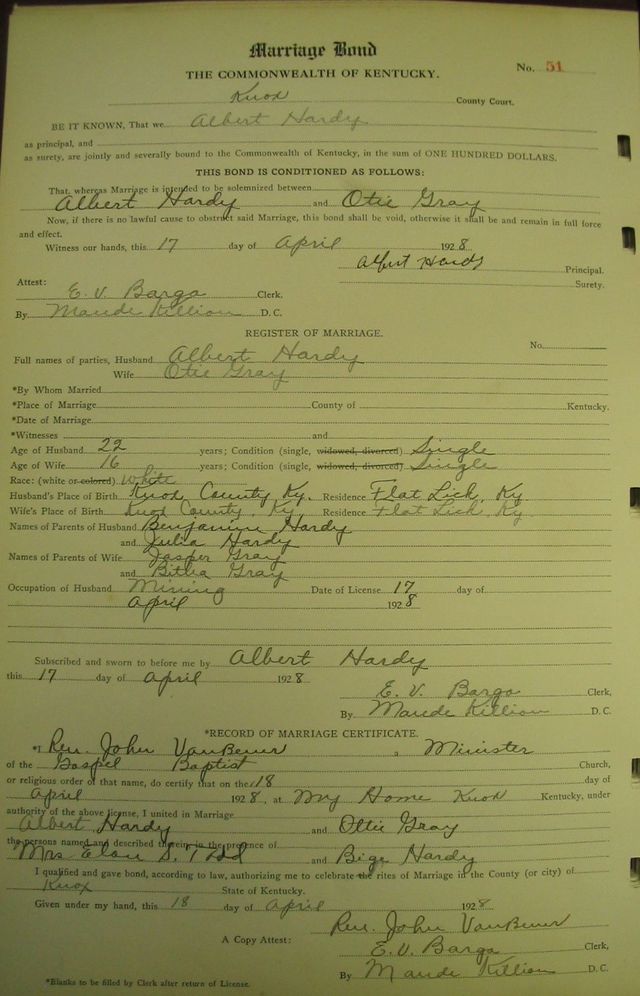 Marriage Bond
No. 51
THE COMMONWEALTH OF KENTUCKY.
Knox County Court.
BE IT KNOWN, That we Albert Hardy
as principal, and
as surety, are jointly and severally bound to the Commonwealth of Kentucky, in the sum of ONE HUNDRED DOLLARS.
THIS BOND IS CONDITIONED AS FOLLOWS:
That, whereas Marriage is intended to be solemnized between
Albert Hardy and Otie Gray
Now, if there is no lawful cause to obstruct said Marriage, this bond shall be void, otherwise it shall be and remain in full force
and effect.
Witness our hands, this 17 day of April 1928
Albert Hardy Principal.
Attest: Surety.
E. V. Bargo Clerk.
By Maude Killion D. C.
REGISTER OF MARRIAGE.
No.
Full names of parties, Husband Albert Hardy
Wife Otie Gray
*By Whom Married
*Place of Marriage County of Kentucky.
*Date of Marriage
*Witnesses and
Age of Husband 22 years; Condition (single, widowed, divorced) Single
Age of Wife 16 years; Condition (single, widowed, divorced) Single
Race: (white or colored) White
Husband's Place of Birth Knox County, Ky. Residence Flat Lick, Ky
Wife's Place of Birth Knox County, Ky. Residence Flat Lick, Ky.
Names of Parents of Husband Benjamin Hardy
and Julia Hardy
Names of Parents of Wife Jasper Gray
and Bitha Gray
Occupation of Husband Mining Date of License 17 day of
April 1928
Subscribed and sworn to before me by Albert Hardy
this 17 day of April 1928
E. V. Bargo Clerk,
By Maude Killion D. C.
*RECORD OF MARRIAGE CERTIFICATE.
*I Rev. John VanBever a Minister
of the Gospel Baptist Church,
or religious order of that name, do certify that on the 18 day of
April 1928, at My Home Knox Kentucky, under
authority of the above license, I united in Marriage
Albert Hardy and Ottie Gray
the persons named and described therein, in the presence of
Mrs and Bige Hardy
I qualified and gave bond, according to law, authorizing me to celebrate the rites of Marriage in the County (or city) of
Knox State of Kentucky.
Given under my hand, this 18 day of April 1928
Rev. John VanBever
A Copy Attest: E. V. Bargo Clerk,
By Maude Killion D. C.
*Blanks to be filled by Clerk after return of License.